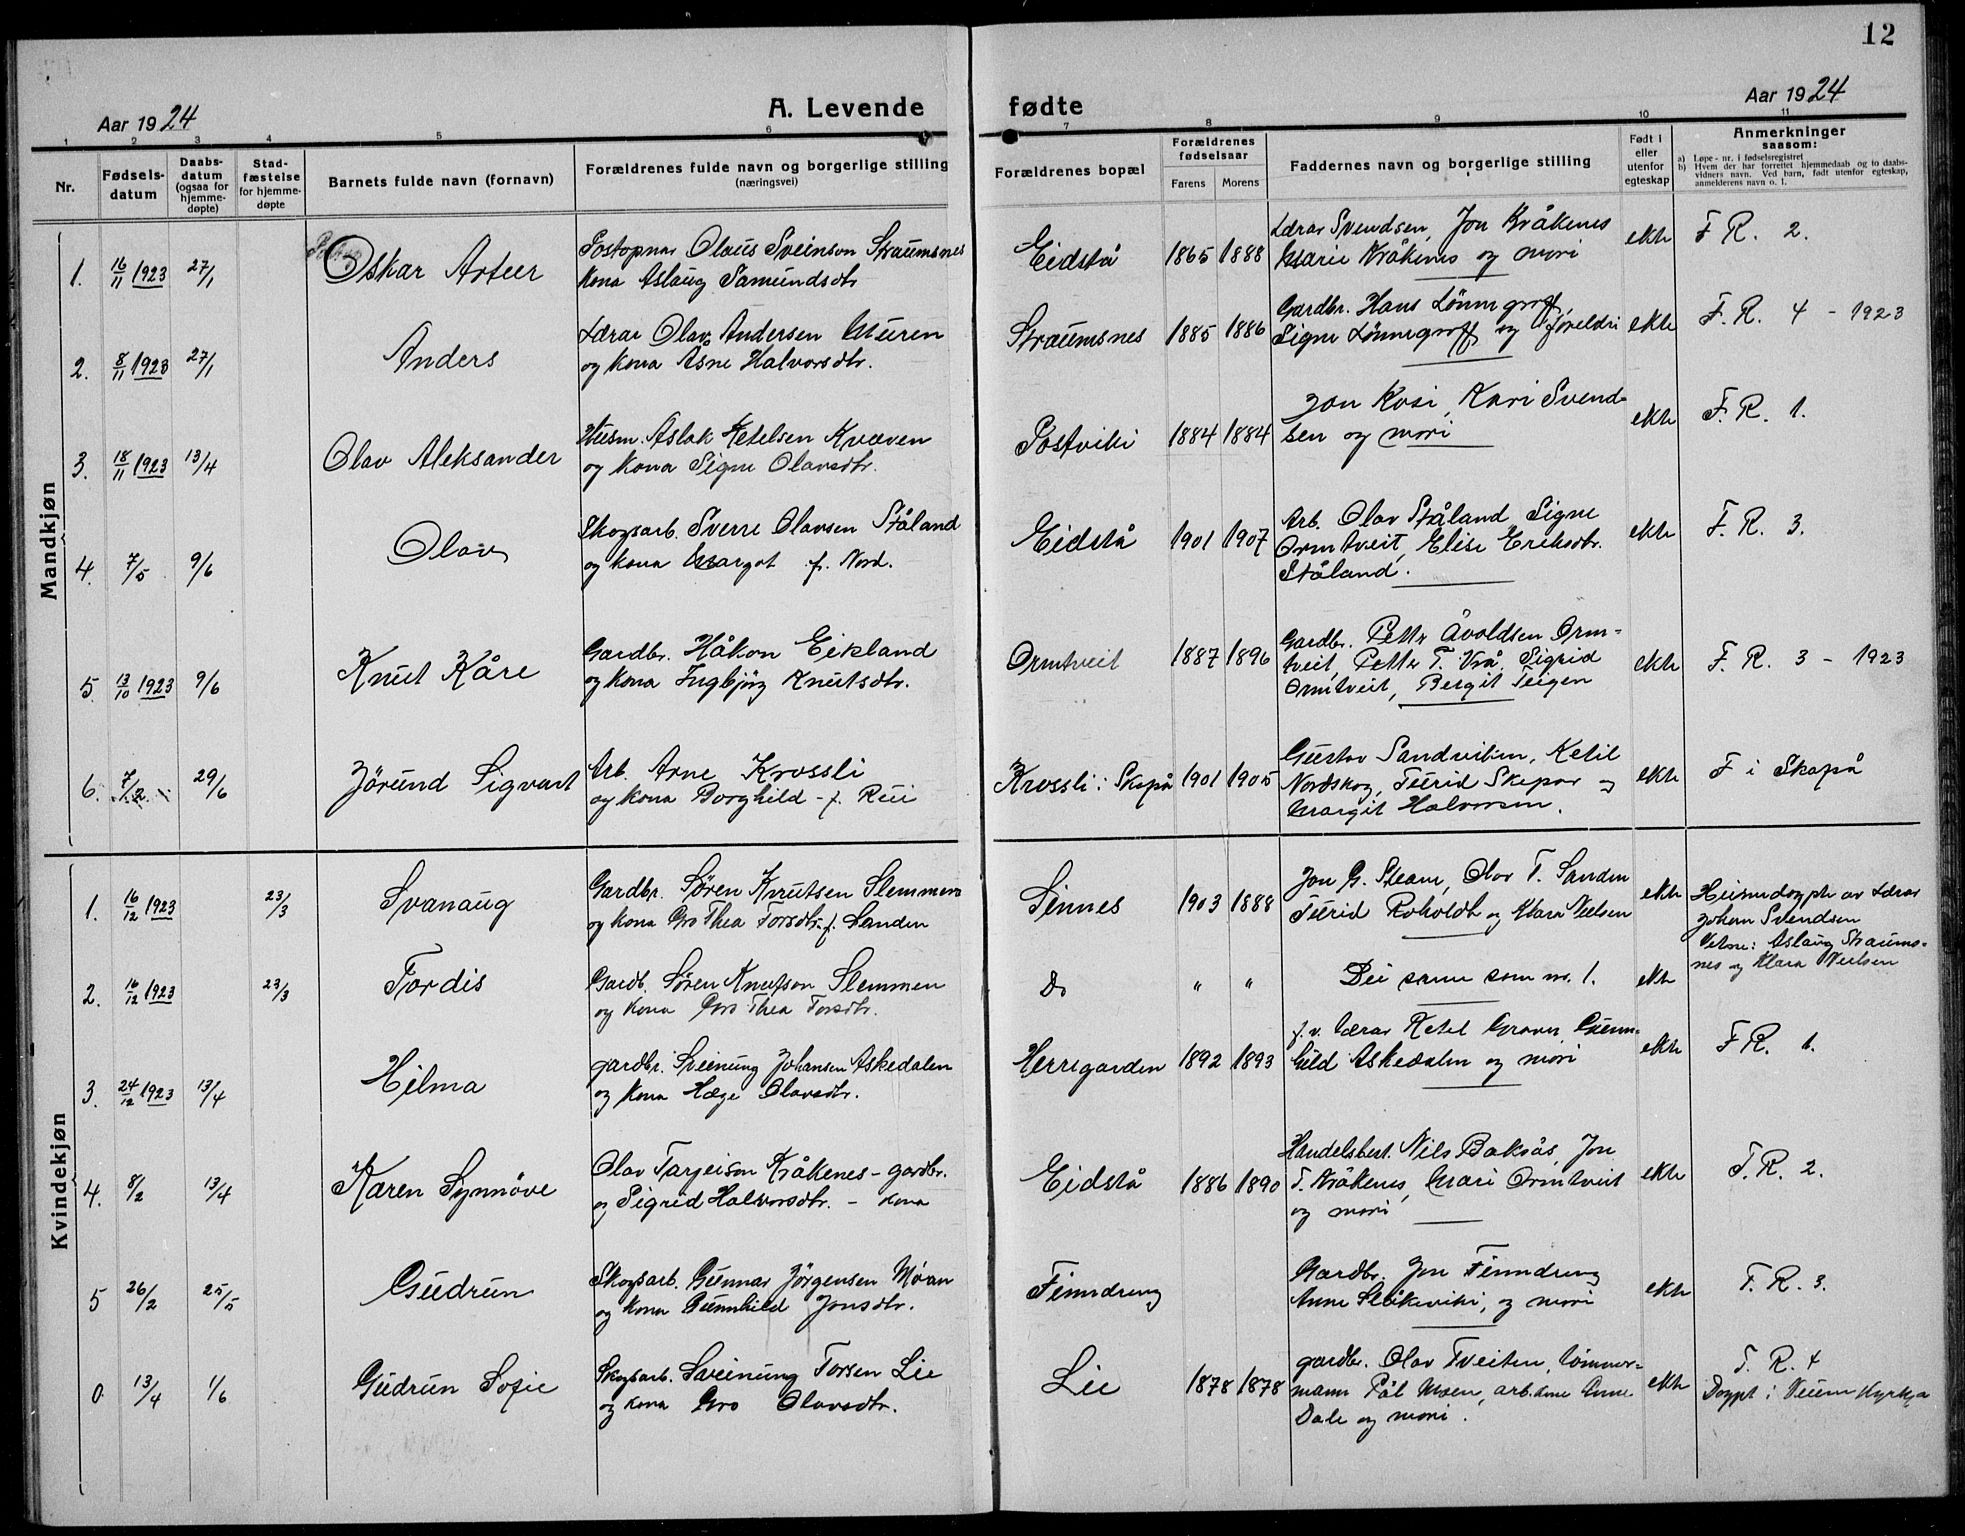 12
Aar 1924
A. Levende fødte
Aar 1924
1 2 3 4 5 6 7 8 9 10 11
Nr.
Fødsels-
datum
Daabs-
datum
(ogsaa for
hjemme-
døpte)
Stad-
fæstelse
for hjemme-
døpte
Barnets fulde navn (fornavn)
Forældrenes fulde navn og borgerlige stilling
(næringsvei)
Forældrenes bopæl
Forældrenes
fødselsaar
Farens Morens
Faddernes navn og borgerlige stilling
Født i
eller
utenfor
egteskap
Anmerkninger
saasom:
a) Løpe-nr. i fødselsregistret
b) Hvem der har forrettet hjemmedaab og to daabs-
vidners navn. Ved barn, født utenfor egteskap,
anmelderens navn o. l.
Mandkjøn
1. 16/11 1923 27/1 Oskar Arteer
Postopnar Olaus Sveinson Straumsnes
Kona Aslaug Samundsdtr
Eidstå 1865 1888
Lærar Svendsen, Jon Kråkenes
Marie Kråkenes og mori
ekte F. R. 2.
2. 8/11 1923 27/1 Anders
Lærar Olav Andersen Muren
og kona Åsne Halvorsdtr.
Straumsnes 1885 1886
Gardbr. Hans Lönnegroff,
Signe Lönnegroff og foreldri
ekte F. R. 4 - 1923
3. 18/11 1923 13/4 Olav Aleksander
Husm. Aslak Ketelsen Kvæven
og kona Signe Olavsdtr.
Postviki 1884 1884
Jon Kosi, Kari Svend-
sen og mori
ekte F. R. 1.
4. 7/5 9/6 Olav
Skogsarb. Sverre Olavsen Ståland
og kona Margot f. Nord.
Eidstå 1901 1907
Arb. Olav Ståland, Signe
Ormtveit, Elise Eriksdtr.
Ståland.
ekte F. R. 3.
5. 13/10 1923 9/6 Knut Kåre
Gardbr. Håkon Eikland
og kona Ingbjörg Knutsdtr.
Ormtveit 1887 1896
Gardbr. Petter Åvoldsen Orm-
tveit, Petter T. Vrå, Sigrid
Ormtveit, Bergit Teigen
ekte F. R. 3 - 1923
6. 7/2 29/6 Jörund Sigvart
Arb. Arne Krossli
og kona Borghild - f. Rui
Krossli i Skapå 1901 1905
Gustav Sandviken, Ketil
Nordskog, Turid Skepar og
Margit Halvorsen.
ekte F i Skapå
Kvindekjøn
1. 16/12 1923 23/3 Svanaug
Gardbr. Søren Knutsen Slemmen
og kona Gro Thea Torsdtr. f. Sanden
Sinnes 1903 1888
Jon G. Steane, Olav T. Sanden
Turid Roholdt og Klara Nielsen
ekte Heimedøypte av Lærar
Johan Svendsen
Vitne: Aslaug Straums-
nes og Klara Nielsen
2. 16/12 1923 23/3 Tordis
Gardb. Søren Knutson Slemmen
og kona Gro Thea Torsdtr.
Do " " Dei same som nr. 1. ekte
3. 24/12 1923 13/4 Hilma
gardbr. Sveinung Johansen Askedalen
og kona Hæge Olavsdtr.
Herregarden 1892 1893
f.v. Lærar Ketel Graver, Gunn-
hild Askedalen og mori
ekte F R. 1.
4. 8/2 13/4 Karen Synnöve
Olav Tarjeison Kråkenes - gardbr.
og Sigrid Halvorsdtr. - kona
Eidstå 1886 1890
Handelsbest. Nils Baksås, Jon
T. Kråkenes, Mari Ormtveit
og mori
ekte F. R. 2.
5 26/2 25/5 Gudrun
Skogsarb. Gunnar Jörgensen Moan
og kona Gunnhild Jonsdtr.
Finndreng
Gardbr. Jon Finndreng
Anne Slåkeviki, og mori
ekte F. R. 3.
0. 13/4 1/6 Gudrun Sofie
Skogsarb. Sveinung Torsen Lie
og kona Gro Olavsdtr.
Lie 1878 1878
gardbr. Olav Tveiten, tömmer-
mann Pål Moen, arb.
Dale og mori.
ekte F. R. 4
Døypt i Veum Kyrkja